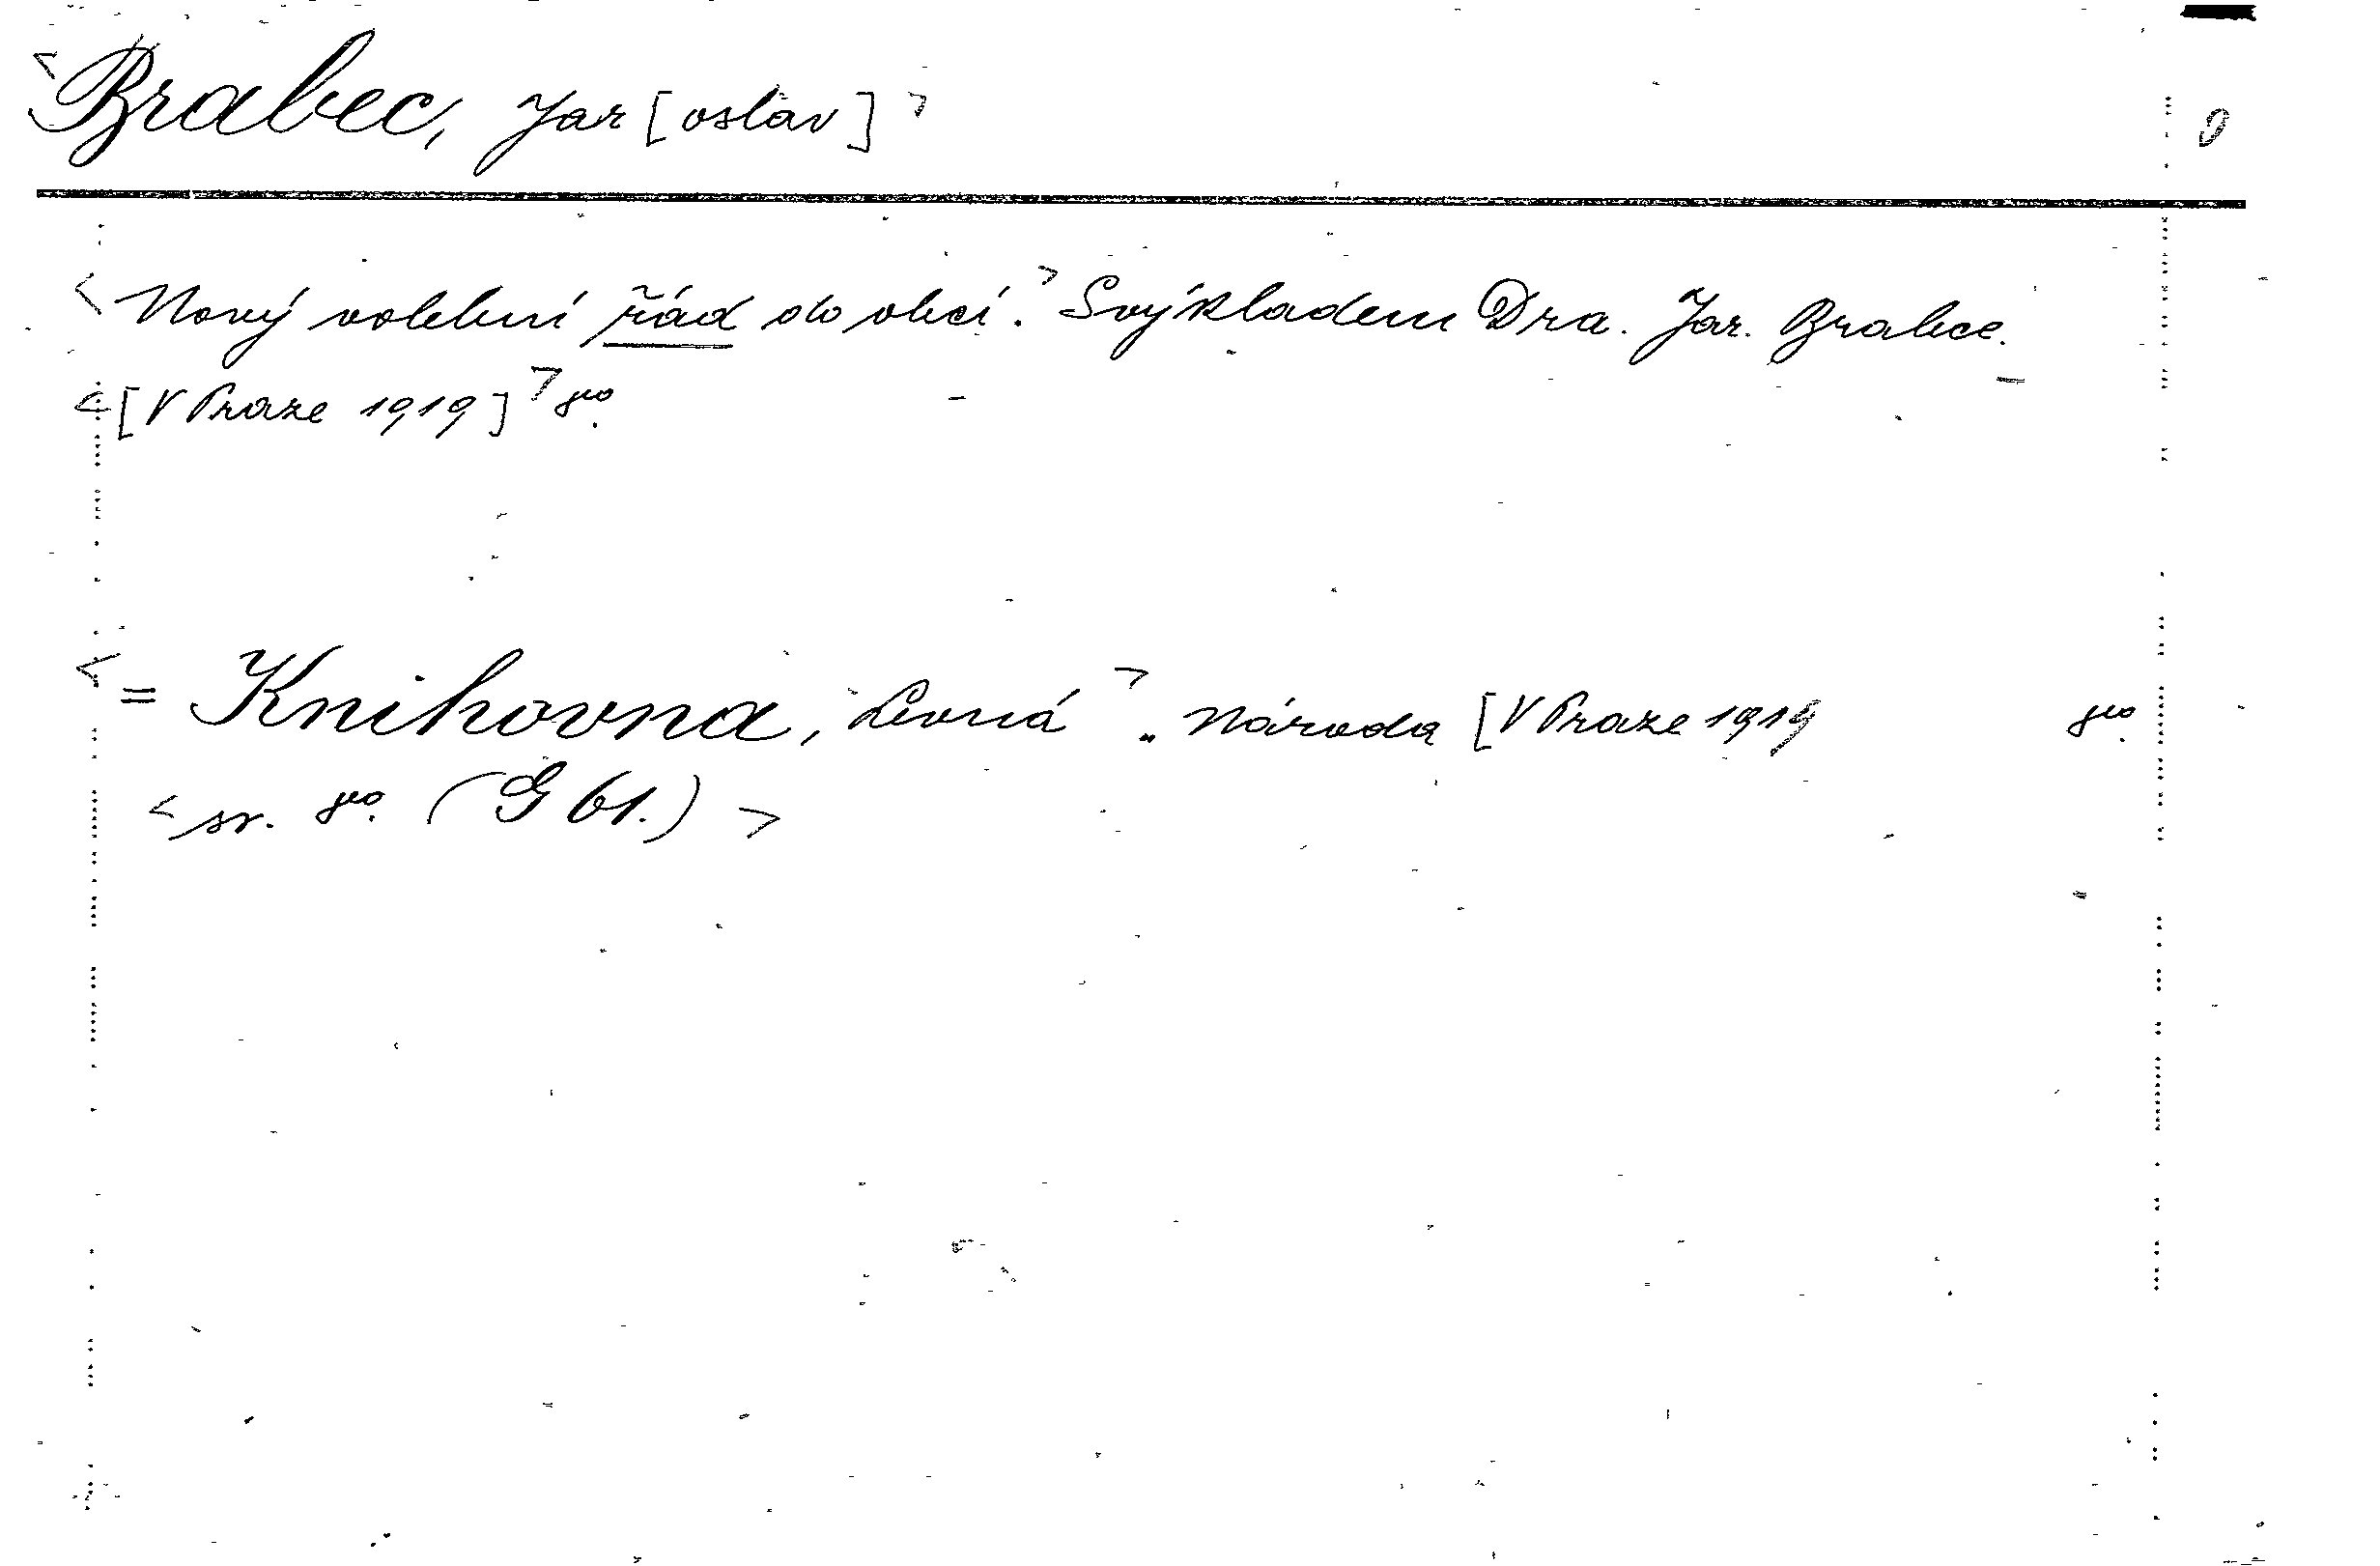 <Brabec, Jar[oslav]>
<Nový volební řád do obcí.> S výkladem Dra. Jar. Brabce.
<[V Praze 1919]> 8º.
<= Knihovna, Levná> „Národa [V Praze 1919 8º.
<sv. 8º. (G 61.)>